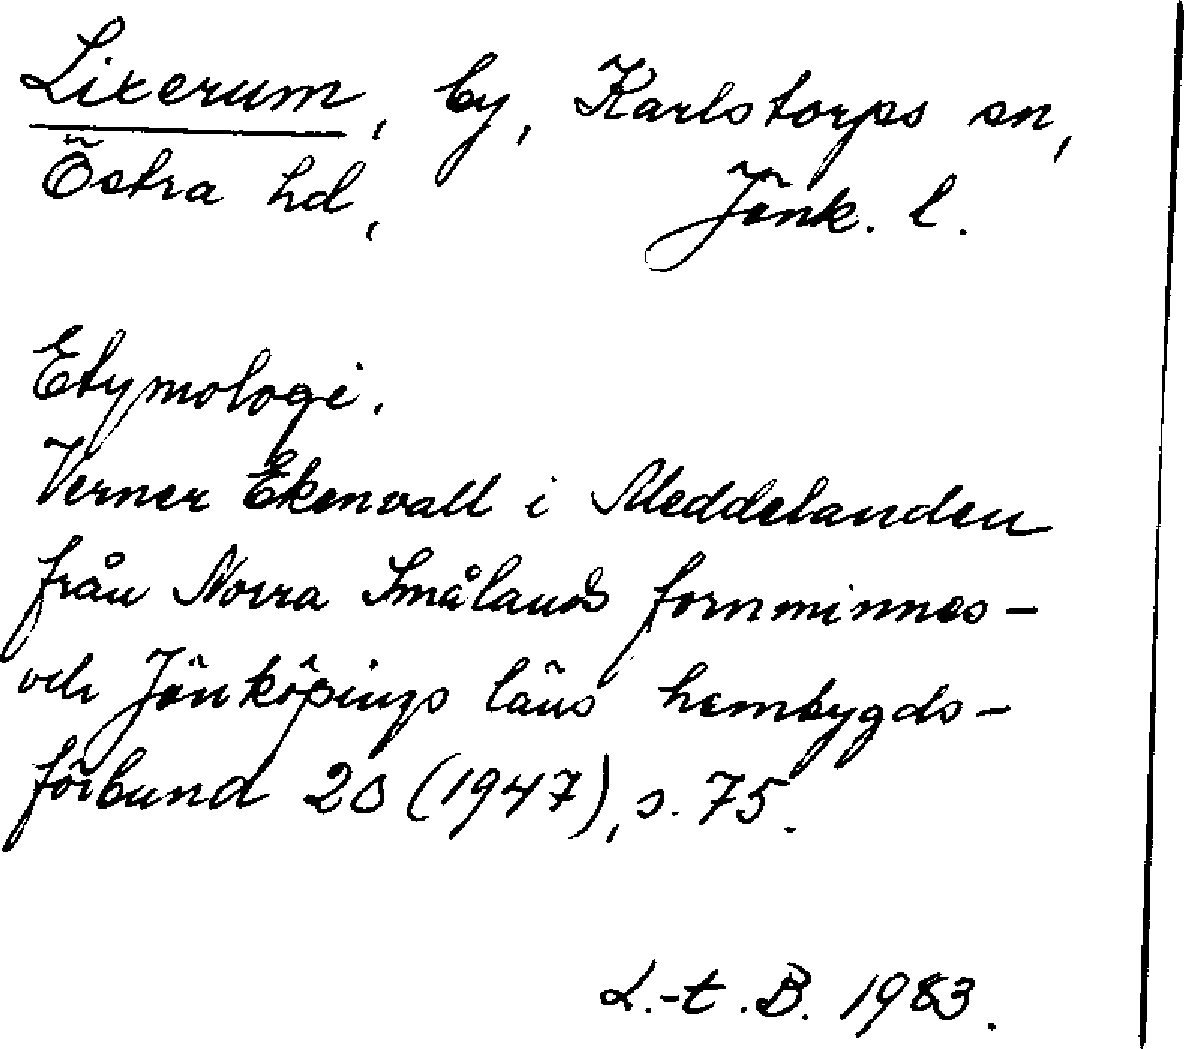 Lixerum, by, Karlstorps sn,
Östra hd, Jönk. l.
Etymologi.
Verner Ekenvall i Meddelanden
från Norra Smålands fornminnes-
och Jönköpings läns hembygds-
förbund 20 (1947), s. 75.
L.-t. B. 1983.